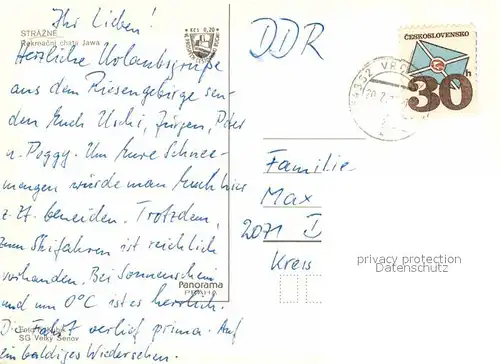 Ihr Lieben!
STRÁŽNÉ
Rekreační chata Jawa
Herzliche Urlaubsgrüße
aus dem Riesengebirge sen-
den Euch Uschi, Jürgen, Peter
u. Peggy. Um Eure Schnee-
mengen würde man Euch hier
z. Zt. beneiden. Trotzdem,
zum Skifahren ist reichlich
vorhanden. Bei Sonnenschein
und um 0°C ist es herrlich.
Die Fahrt verlief prima. Auf
ein baldiges Wiedersehen.
SG Velký Šenov
Panorama
PRAHA
Kčs 0,20
DDR
ČESKOSLOVENSKO
30h
Familie
Max
2071 I
Kreis
privacy protection
Datenschutz